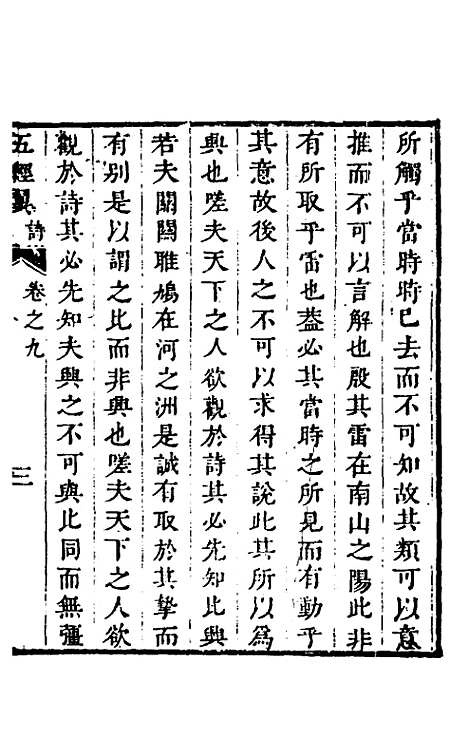 所觸乎當時時已去而不可知故其類可以意
推而不可以言解也殷其雷在南山之陽此非
有所取乎雷也葢必其當時之所見而有動乎
其意故後人之不可以求得其說此其所以為
興也嗟夫天下之人欲觀於詩其必先知比興
若夫關關雎鳩在河之洲是誠有取於其摯而
有别是以謂之比而非興也嗟夫天下之人欲
觀於詩其必先知夫興之不可與比同而無彊
五經 詩 卷之九 三